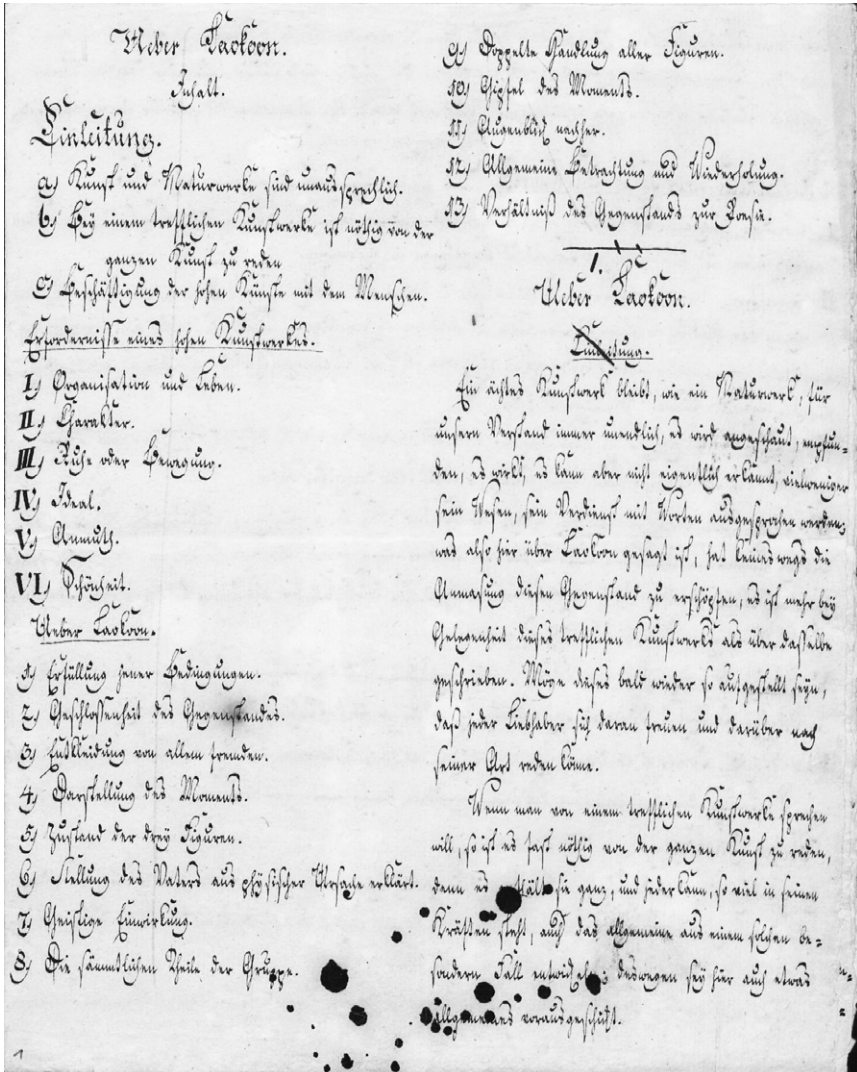 Ueber Laokoon.
Inhalt.
Einleitung.
a) Kunst und Naturwerke sind unaussprechlich.
b) Bey einem trefflichen Kunstwerke ist nöthig von der
ganzen Kunst zu reden
c) Beschäftigung der hohen Künste mit dem Menschen.
Erfordernisse eines hohen Kunstwerkes.
I) Organisation und Leben.
II) Charakter.
III) Ruhe oder Bewegung.
IV) Ideal.
V) Anmuth.
VI) Schönheit.
Ueber Laokoon.
1) Erfüllung jener Bedingungen.
2) Geschlossenheit des Gegenstandes.
3) Entkleidung von allem fremden.
4) Darstellung des Moments.
5) Zustand der drey Figuren.
6) Stellung des Vaters aus physischer Ursache erklärt.
7) Geistige Einwirkung.
8) Die sämmtlichen Theile der Gruppe.
9) Doppelte Handlung aller Figuren.
10) Gipfel des Moments.
11) Augenblick nachher.
12) Allgemeine Betrachtung und Wiederholung.
13) Verhältniß des Gegenstands zur Poesie.
1.
Ueber Laokoon.
Einleitung.
Ein ächtes Kunstwerk bleibt, wie ein Naturwerk, für
unsern Verstand immer unendlich, es wird angeschaut, empfun-
den, es wirkt, es kann aber nicht eigentlich erkannt, vielweniger
sein Wesen, sein Verdienst mit Worten ausgesprochen werden;
was also hier über Laokoon gesagt ist, hat keineswegs die
Anmasung diesen Gegenstand zu erschöpfen, es ist mehr bey
Gelegenheit dieses trefflichen Kunstwerks als über dasselbe
geschrieben. Möge dieses bald wieder so aufgestellt seyn,
daß jeder Liebhaber sich daran freuen und darüber nach
seiner Art reden könne.
Wenn man von einem trefflichen Kunstwerke sprechen
will, so ist es fast nöthig von der ganzen Kunst zu reden,
denn es enthält sie ganz, und jeder kann, so viel in seinen
Kräften steht, auch das allgemeine aus einem solchen be-
sondern Fall entwickeln; deswegen sey hier auch etwas
allgemeines vorausgeschickt.
1